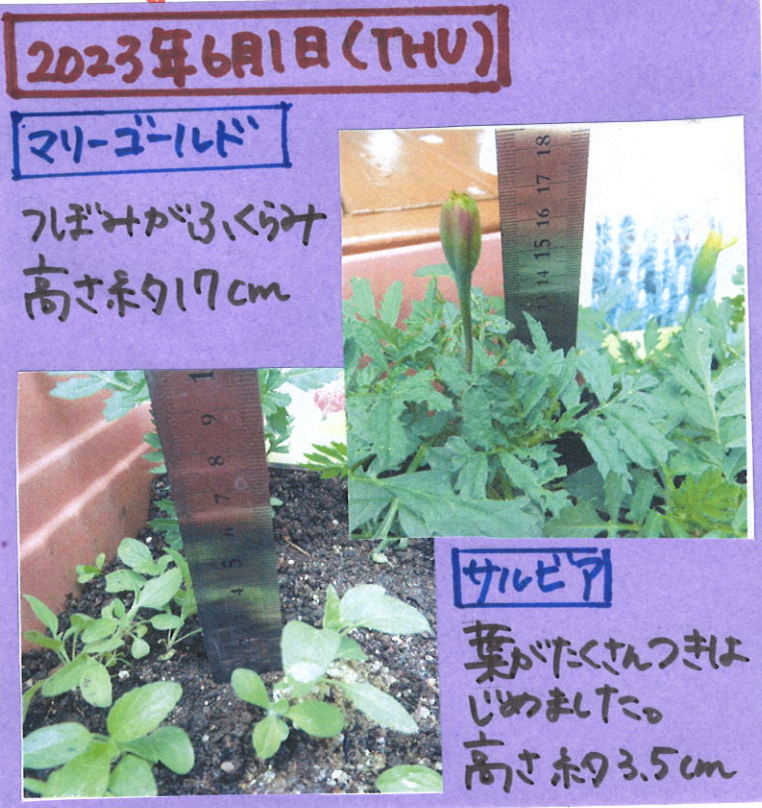 2023年6月1日(THU)
マリーゴールド
つぼみがふくらみ
高さ約17cm
18
17
16
15
14
13
10
9
8
7
6
5
4
サルビア
葉がたくさんつきは
じめました。
高さ約3.5cm